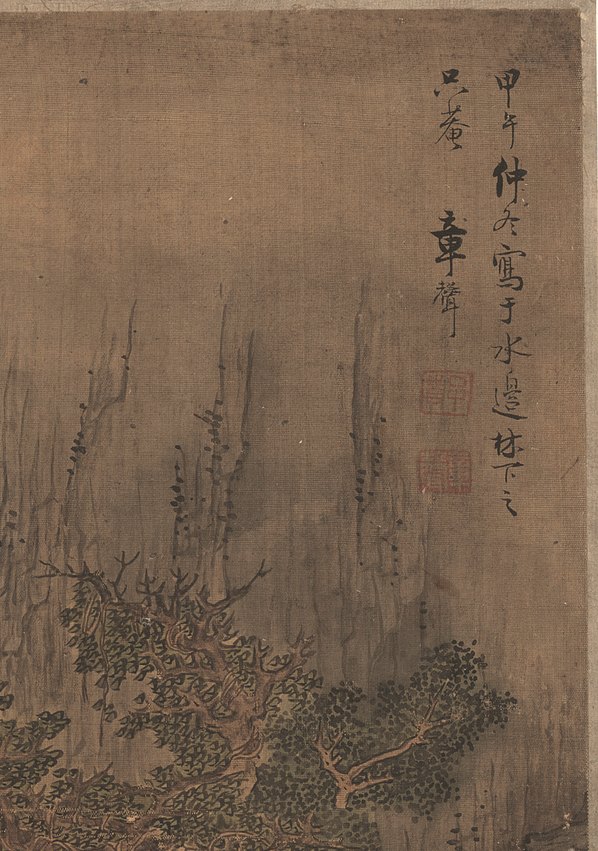 甲午仲冬寫于水邊林下之
只菴 章聲